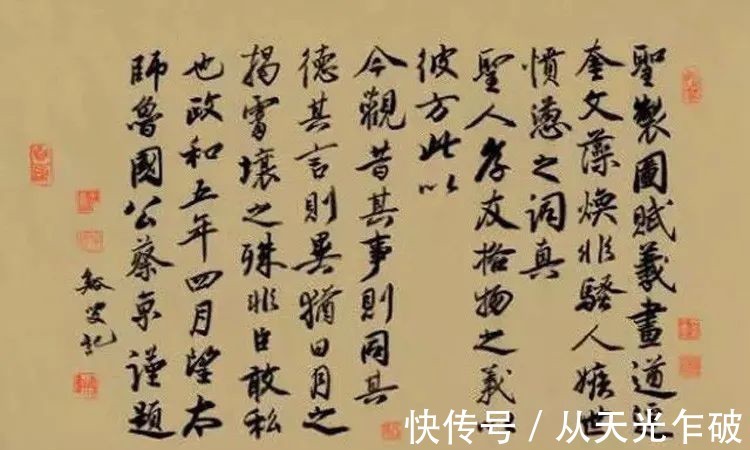 聖製圖賦義畫道
奎文藻煥非騷人嫉世
憤懣之詞真
聖人孝友格物之義
彼方此以
今觀昔其事則同其
德其言則異猶日月之
揭霄壤之殊非臣敢私
也政和五年四月望太
師魯國公蔡京謹題
谿叟記
快传号 / 从天光乍破